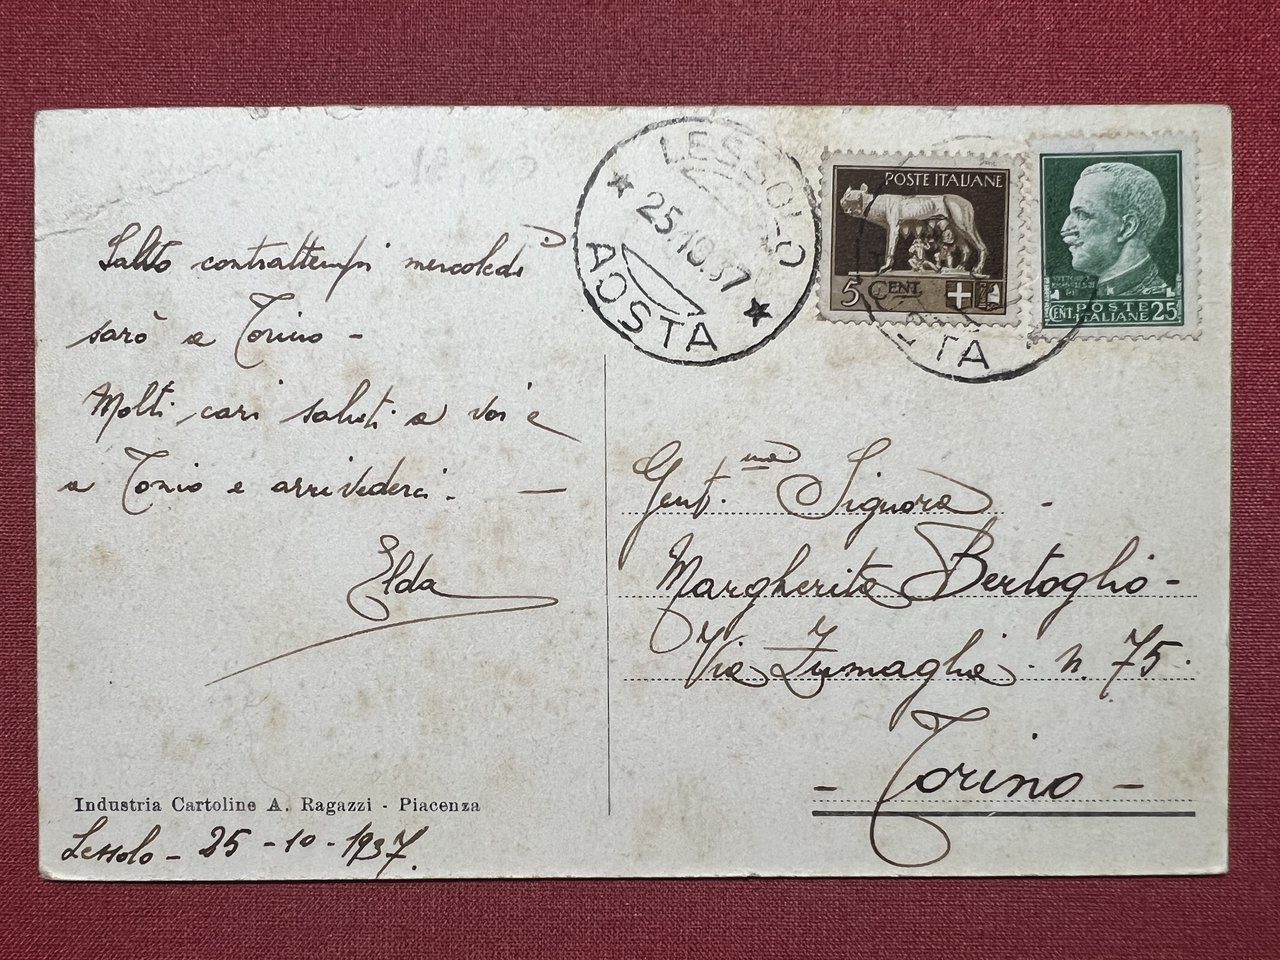 Salvo contrattempi mercoledì
sarò a Torino -
Molti cari saluti a voi e
a Tonio e arrivederci. —
Elda
Industria Cartoline A. Ragazzi - Piacenza
Lessolo - 25 - 10 - 1937.
LESSOLO
25.10.37
AOSTA
POSTE ITALIANE
5 CENT.
POSTE
CENT. ITALIANE 25
TA
Gent.ma Signora -
Margherita Bertoglio -
Via Zumaglia. n. 75.
- Torino -